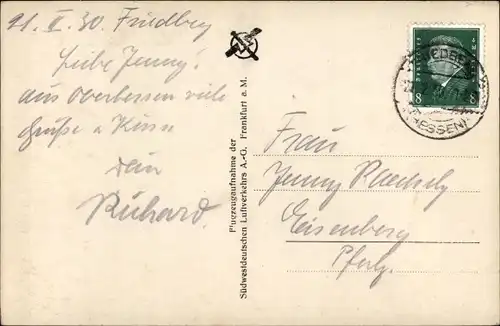 21. II. 30. Friedberg
Liebe Jenny!
aus Oberhessen viele
Grüße u Küsse
dein
Richard.
Flugzeugaufnahme der
Südwestdeutschen Luftverkehrs A.-G. Frankfurt a. M.
8 8
(HESSEN)
Frau
Jenny
Eisenberg
Pfalz.